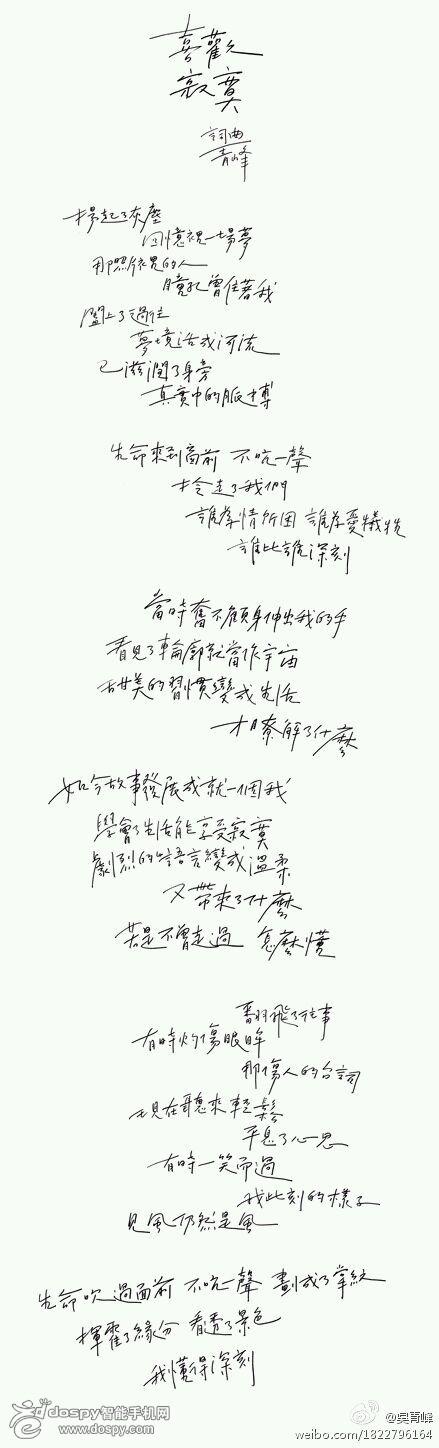 喜歡
寂寞
詞曲
青峰
揚起了灰塵
回憶裡一場夢
那照依舊的人
瞳孔曾住著我
闔上了過往
夢境活成河流
已滋潤了身旁
真實中的脈搏
生命來到面前 不吭一聲
拎走了我們
誰為情所困 誰為愛犧牲
誰比誰深刻
當時奮不顧身伸出我的手
看見了輪廓就當作宇宙
甜美的習慣變成生活
才瞭解了什麼
如今故事發展成就一個我
學會了生活能享受寂寞
劇烈的語言變成溫柔
又帶來了什麼
若是不曾走過 怎麼懂
翻飛了往事
有時灼傷眼眸
那傷人的台詞
現在聽來輕鬆
平息了心思
有時一笑而過
我此刻的樣子
見風仍然是風
生命吹過面前 不吭一聲 劃成了掌紋
揮霍了緣分 看透了景色
我懂得深刻
dospy智能手机网
www.dospy.com
@吴青峰
weibo.com/1822796164